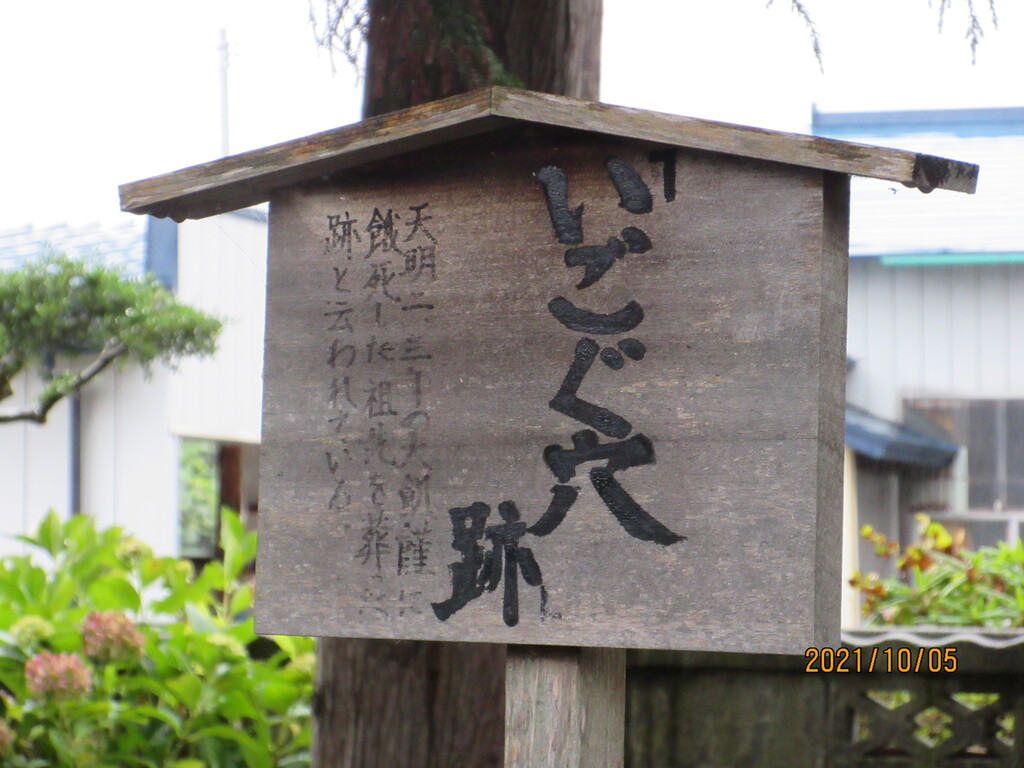 「いごく穴
跡」
天明二、三年の大飢饉に
餓死した祖先を葬った
跡と云われている。
2021/10/05